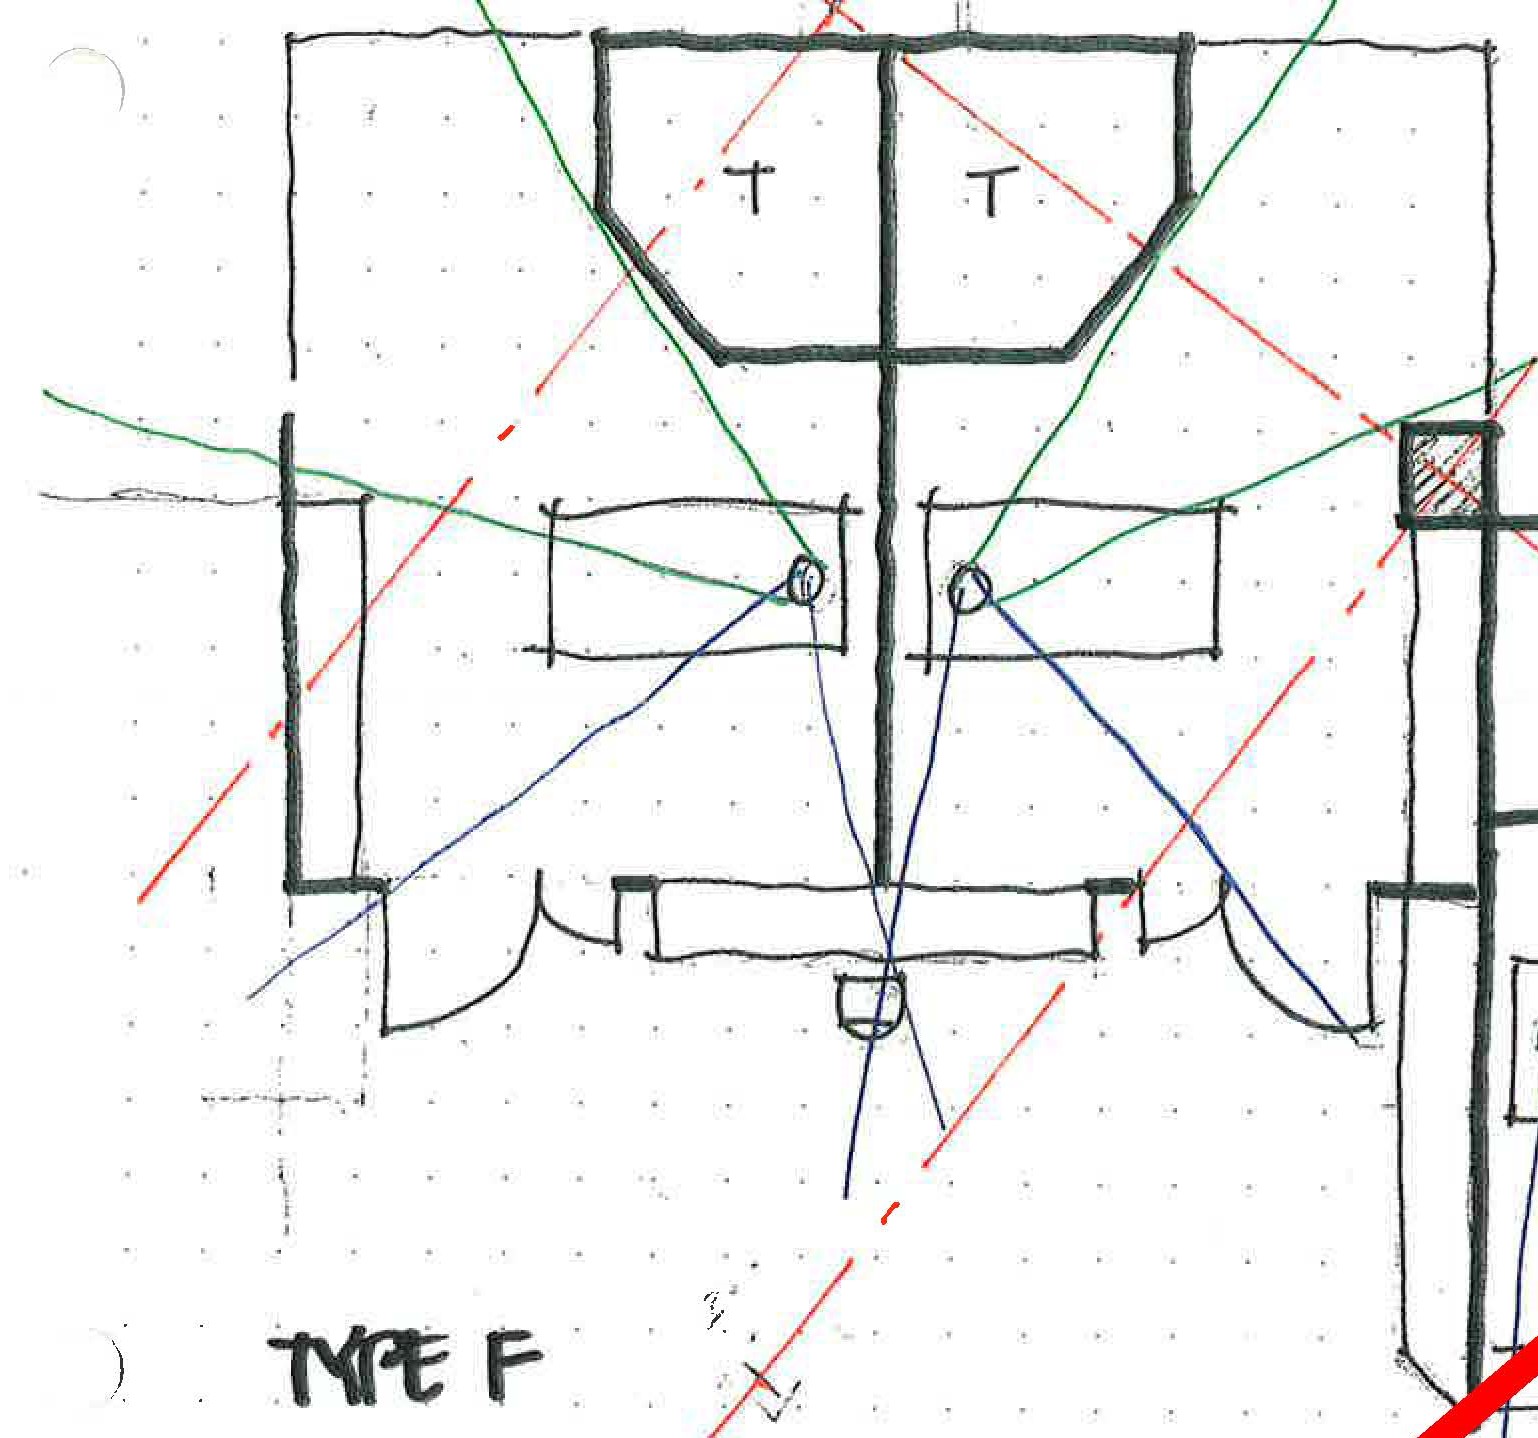 T T
TYPE F